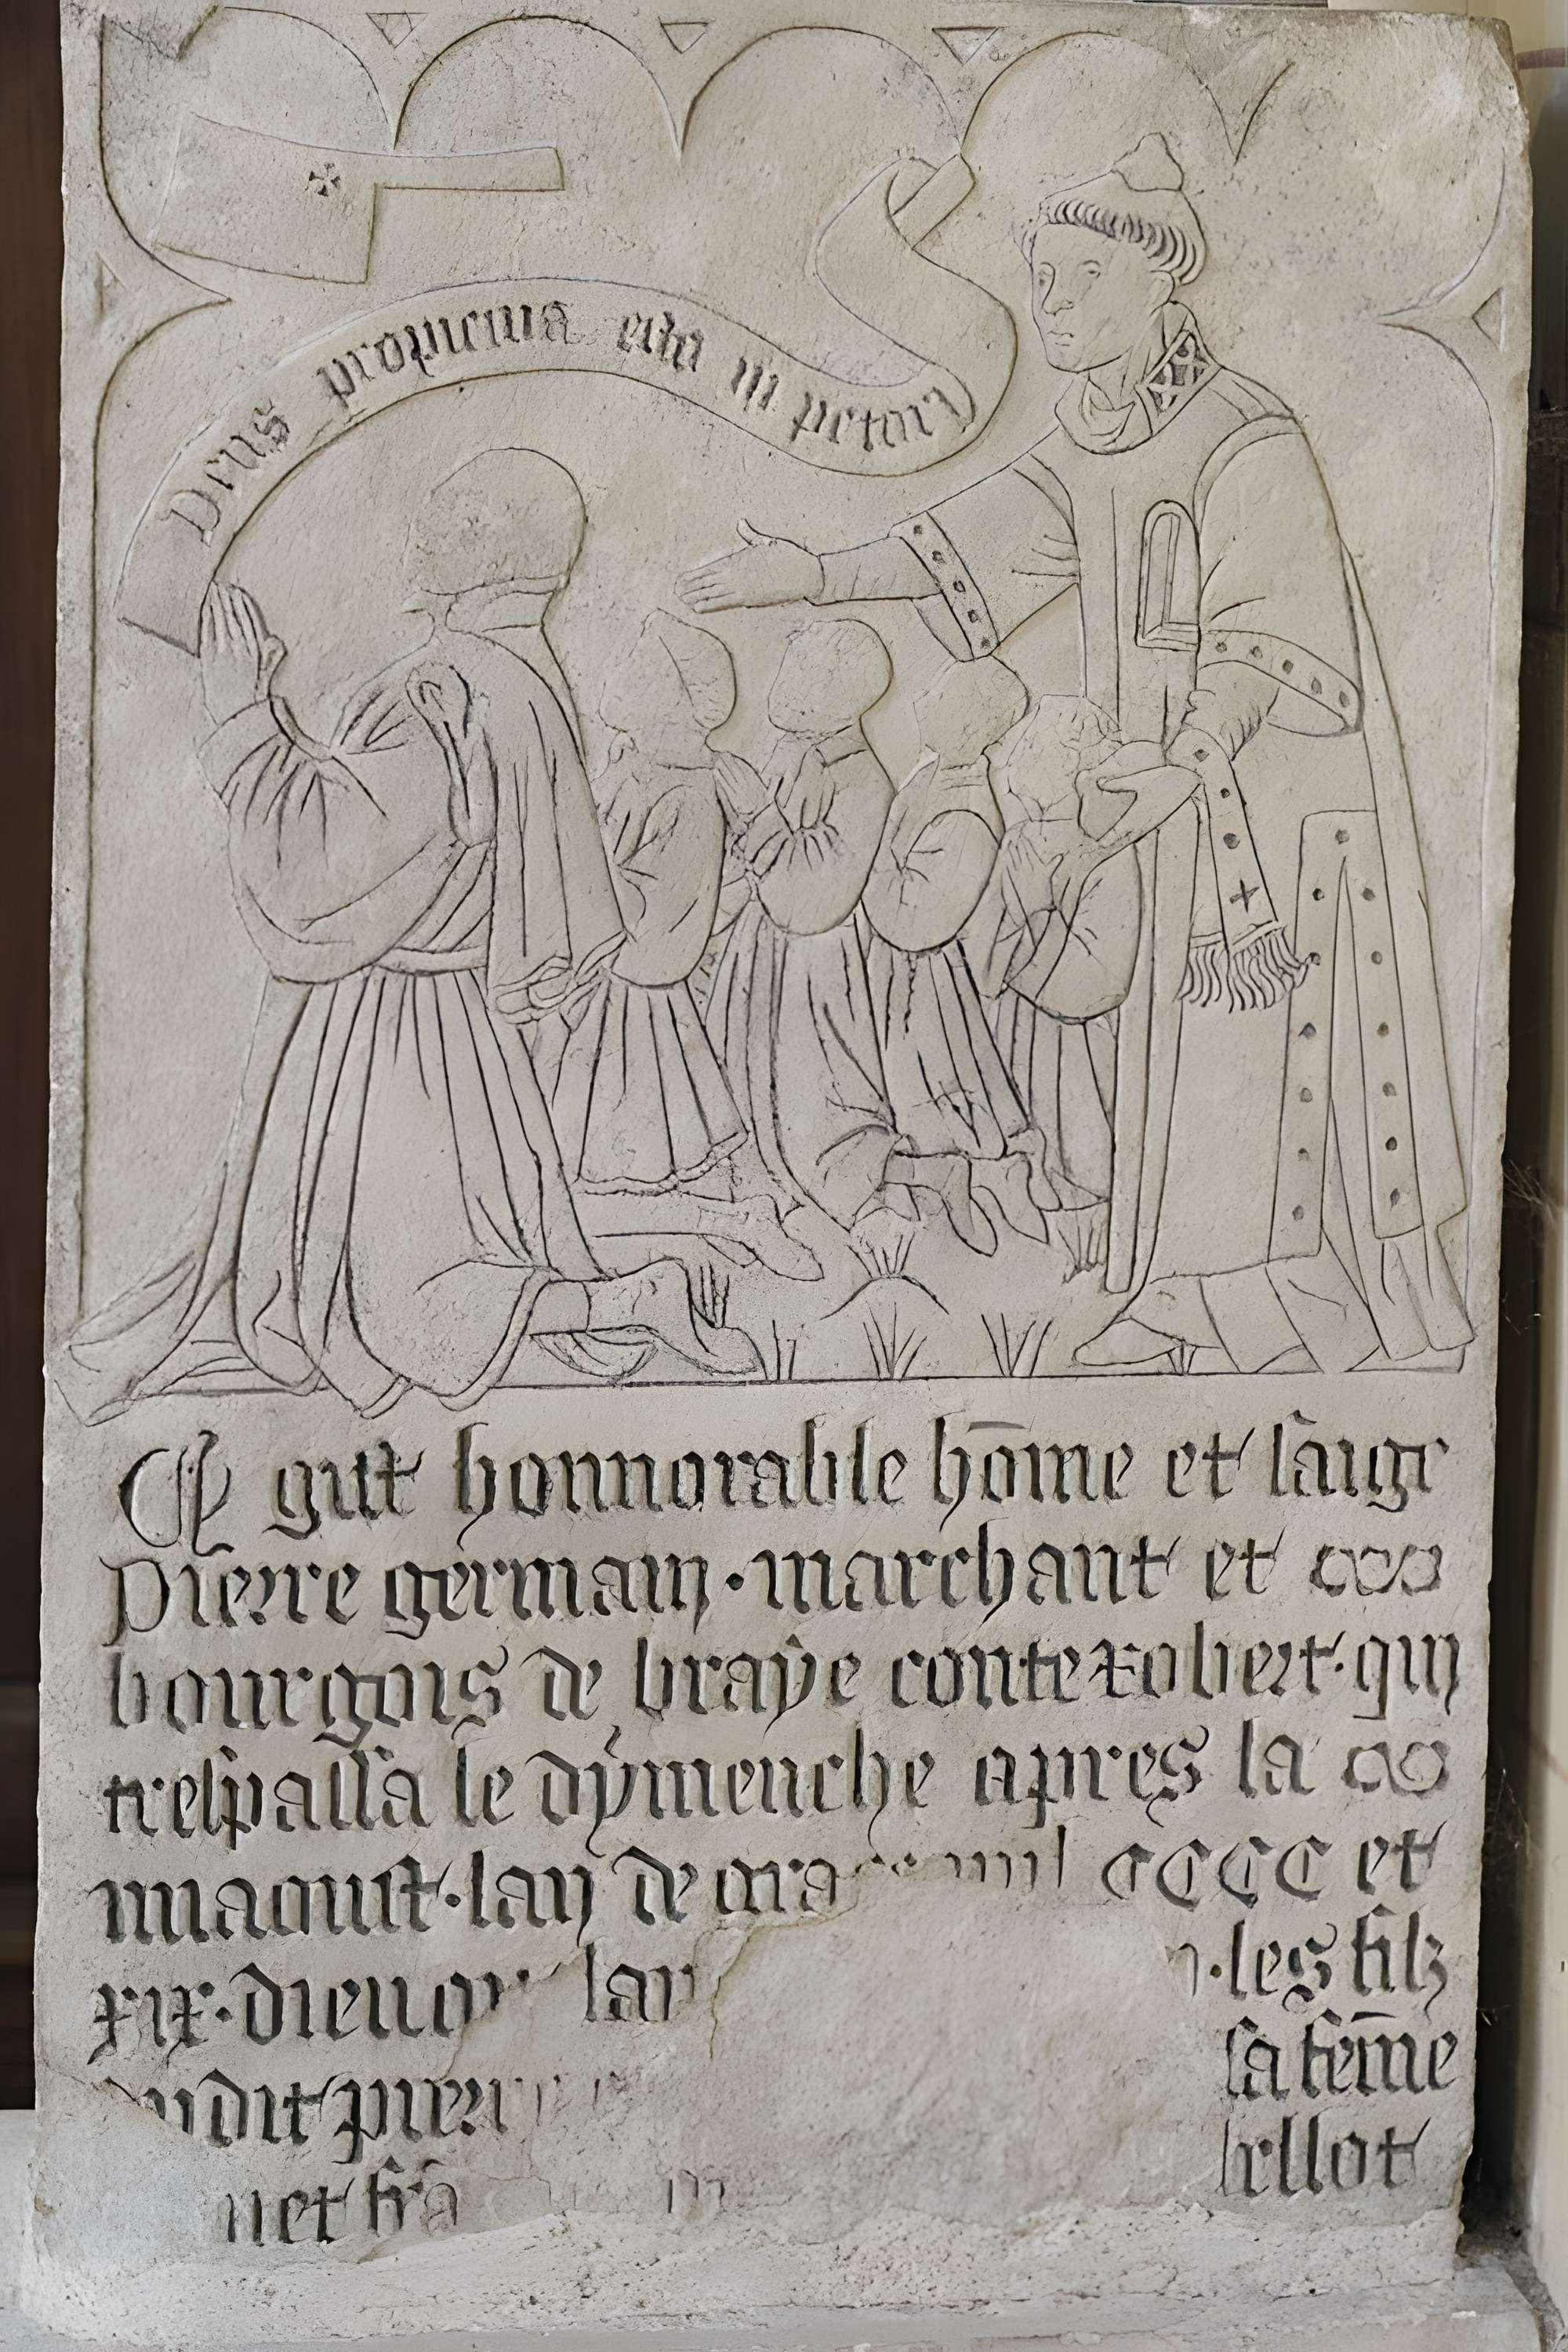 Deus propicius esto m pctori
Cy gist honnorable hōme et saige
Pierre germain · marchant et
bourgois de braye conte robert · qui
trespassa le dymenche apres la
miaoust · lan de grace mil CCCC et
xix · dieu les filz
dudit pierre sa fēme